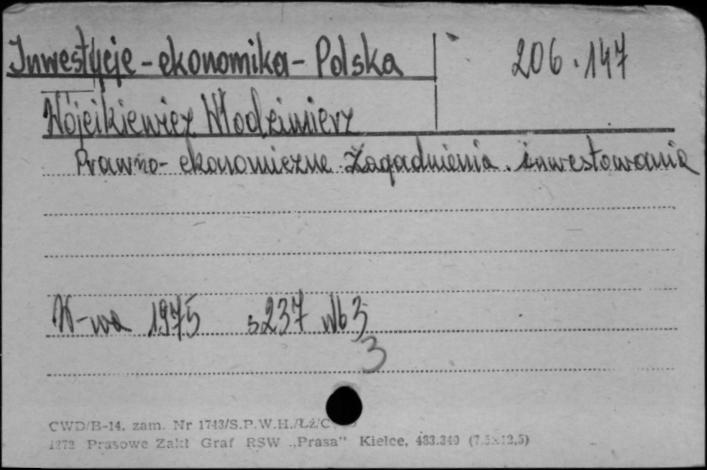 Inwestycje - ekonomika - Polska 206.147
Wójcikiewicz Włodzimierz
Prawno - ekonomiczne zagadnienia inwestowania
W-wa 1975 s 237 nlb 3
3
CWD/B-14. zam. Nr 1743/S.P.W.H./Łż/C
1272 Prasowe Zakł Graf RSW „Prasa" Kielce, 433.340 (7.5x12,5)